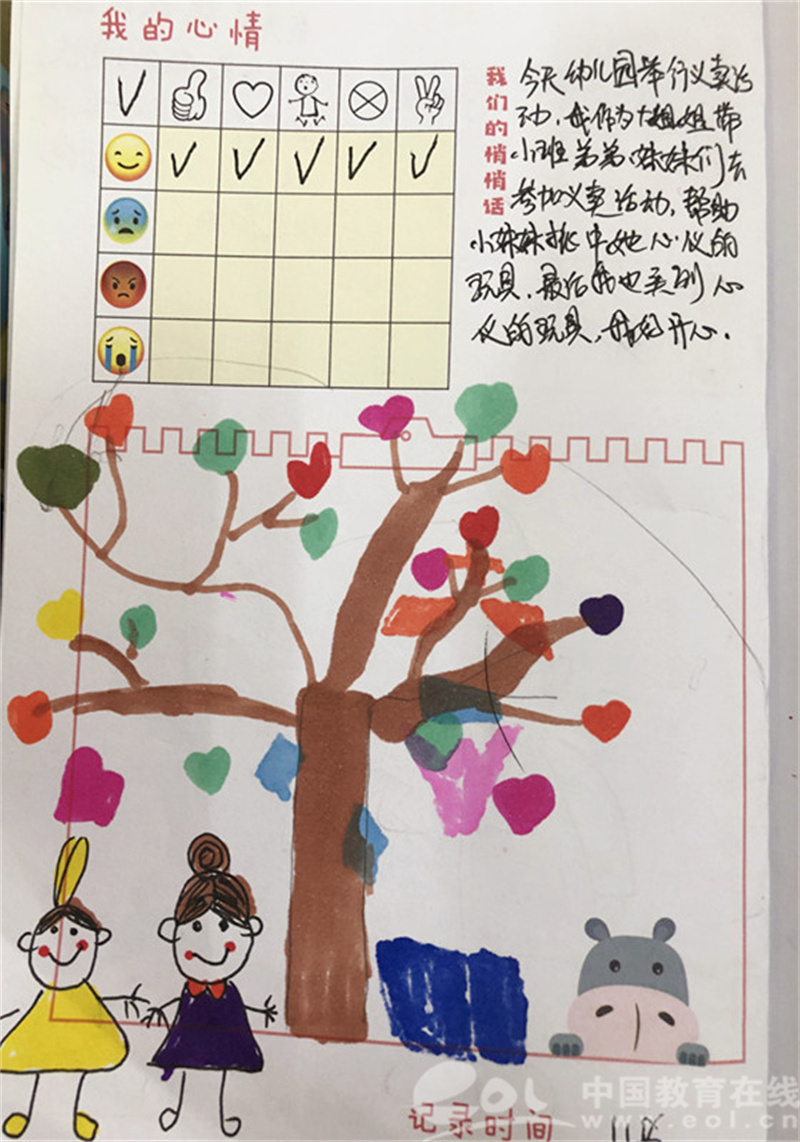 我的心情
我们的悄悄话
今天幼儿园举行义卖活
动，我作为大姐姐带
小班弟弟、妹妹们去
参加义卖活动，帮助
小妹妹挑中她心仪的
玩具，最后我也买到心
仪的玩具，我很开心．
记录时间
eol 中国教育在线
www.eol.cn